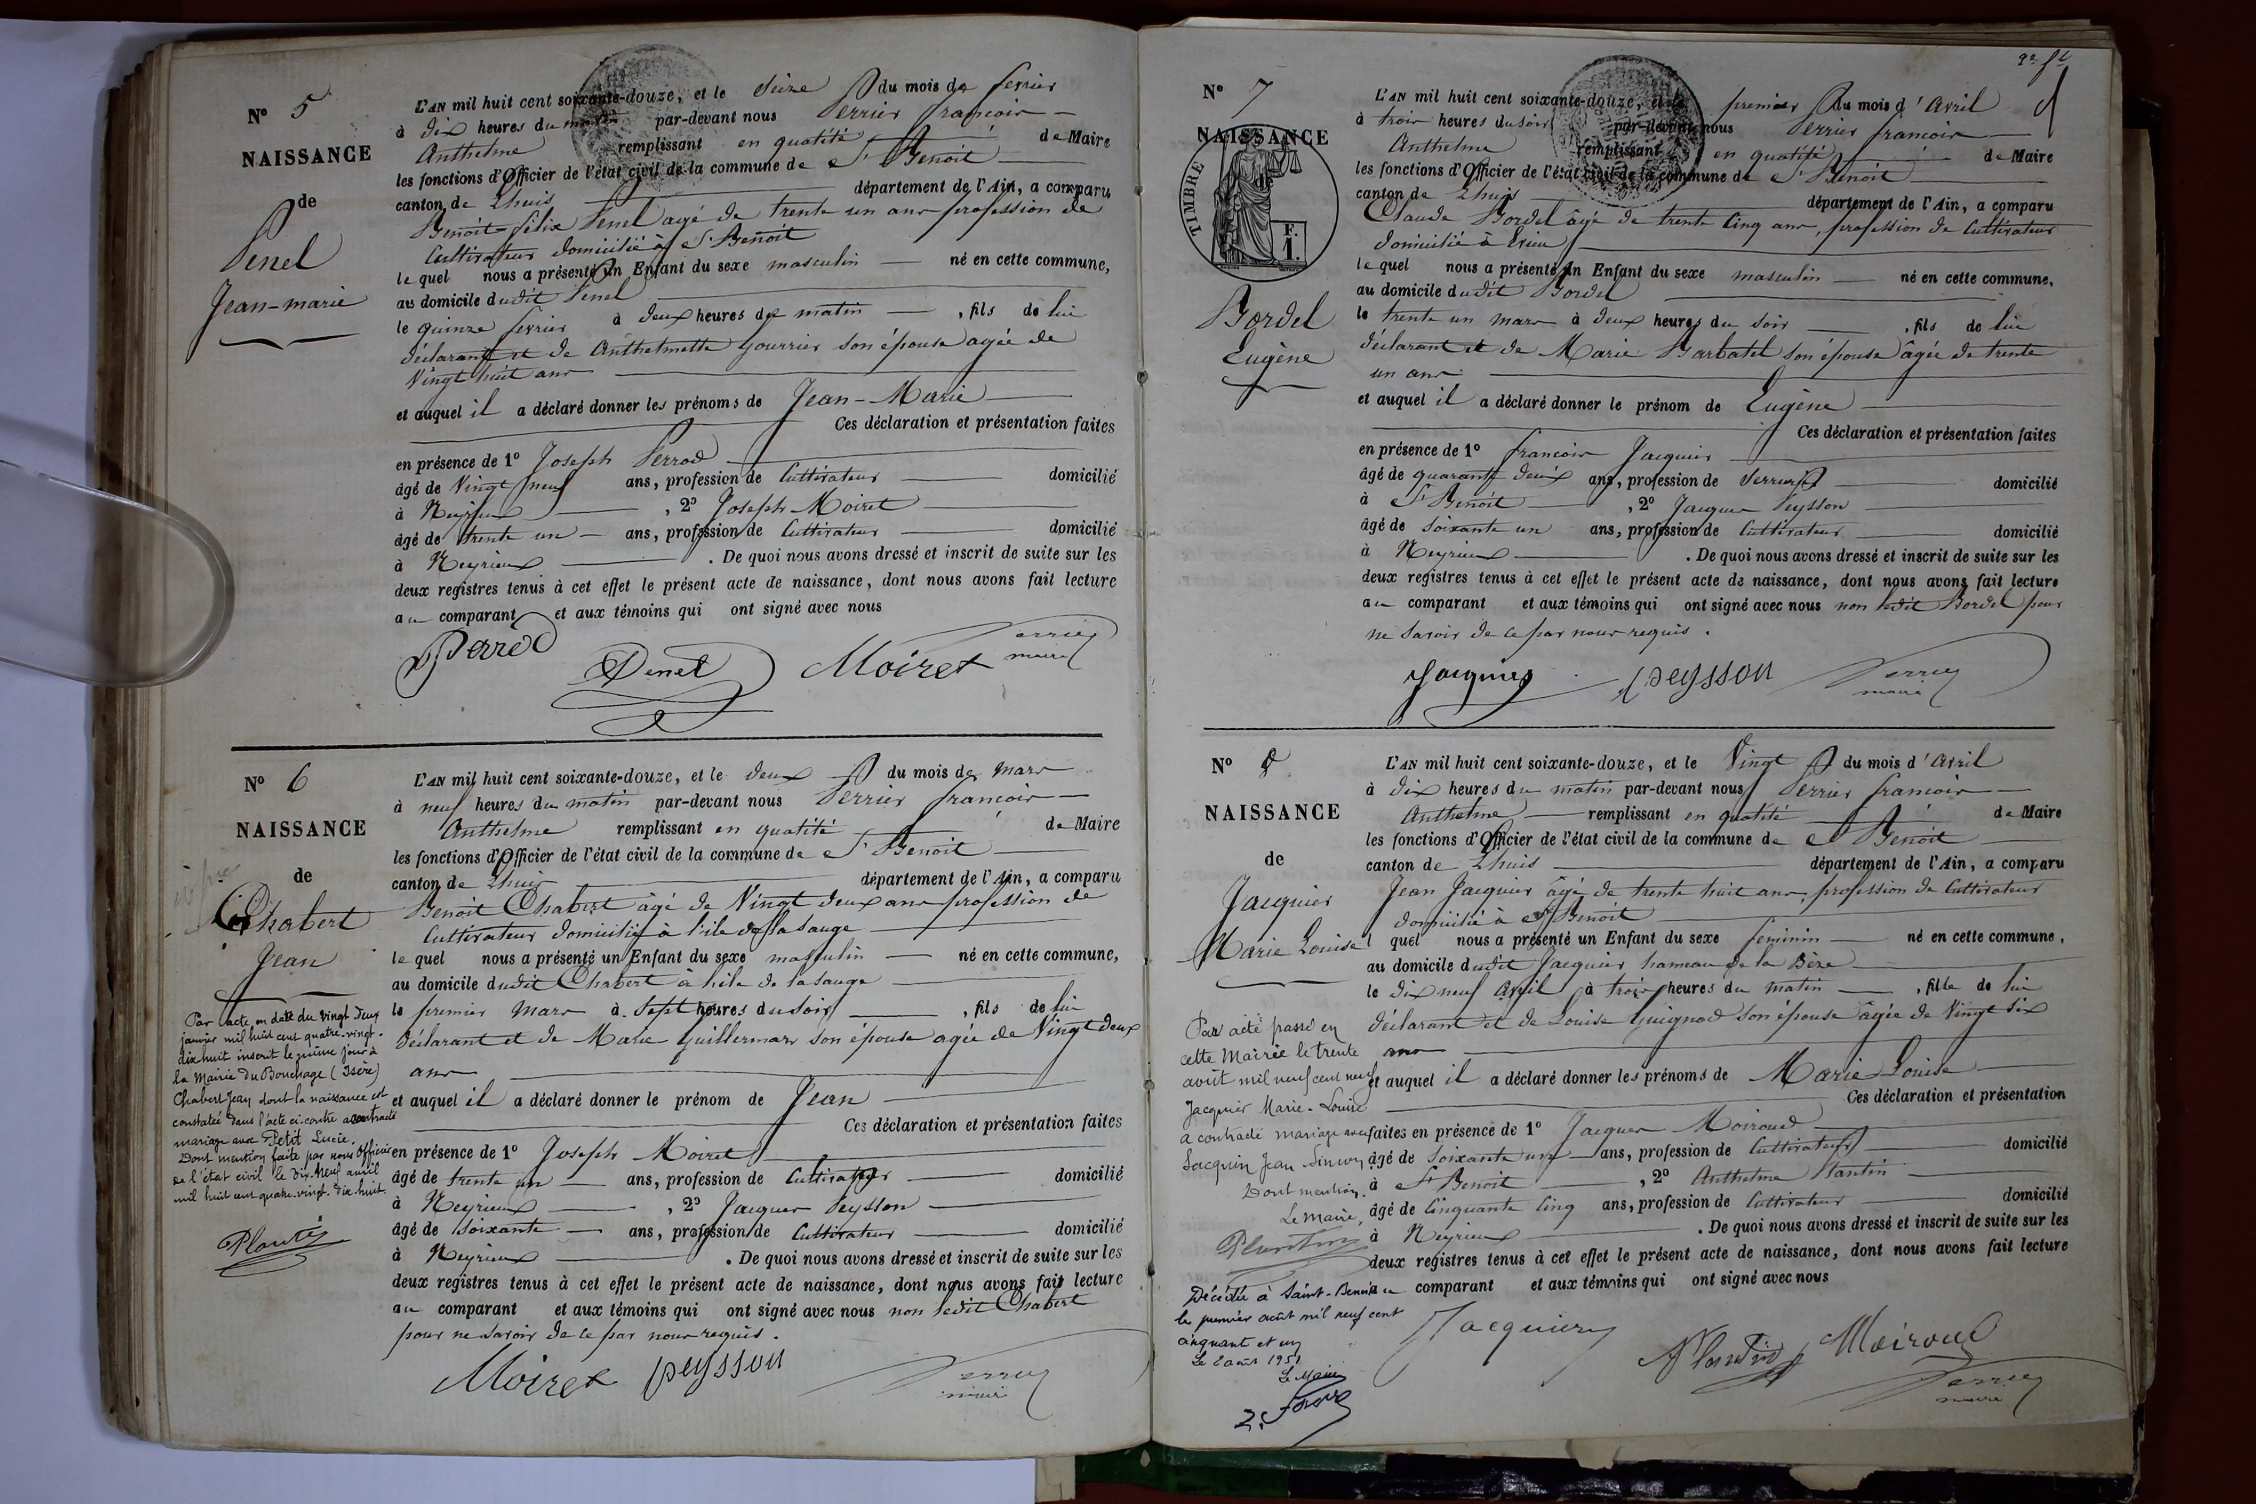 N° 5
NAISSANCE
de
Penel
Jean-marie
L'AN mil huit cent soixante-douze, et le Seize du mois de fevrier
à Dix heures du matin par-devant nous Perrier françois
Anthelme remplissant en qualité de Maire
les fonctions d'Officier de l'état civil de la commune de St Benoit
canton de Lhuis département de l'Ain, a comparu
Benoit-félix Penel agé de trente un ans profession de
Cultivateur domicilié à St Benoit
lequel nous a présenté un Enfant du sexe masculin né en cette commune,
au domicile dudit Penel
le quinze fevrier à deux heures du matin , fils de lui
déclarant et de Anthelmette Gourrier son épouse agée de
Vingt huit ans
et auquel il a déclaré donner les prénoms de Jean-Marie
Ces déclaration et présentation faites
en présence de 1° Joseph Perrod
âgé de Vingt neuf ans, profession de Cultivateur domicilié
à Neyrieux , 2° Joseph Moiret
âgé de trente un ans, profession de Cultivateur domicilié
à Neyrieux . De quoi nous avons dressé et inscrit de suite sur les
deux registres tenus à cet effet le présent acte de naissance, dont nous avons fait lecture
au comparant et aux témoins qui ont signé avec nous
Perrod Penel Moiret Perrier
maire
N° 6
NAISSANCE
de
Chabert
Jean
Par acte en date du vingt deux
janvier mil huit cent quatre-vingt-
dix huit inscrit le même jour à
la Mairie du Bouchage (Isère)
Chabert Jean dont la naissance est
constatée dans l'acte ci-contre a contracté
mariage avec Petit Lucie.
Dont mention faite par nous officier
de l'état civil le dix-neuf avril
mil huit cent quatre-vingt-dix huit.
Plantin
L'AN mil huit cent soixante-douze, et le deux du mois de mars
à neuf heures du matin par-devant nous Perrier françois
Anthelme remplissant en qualité de Maire
les fonctions d'Officier de l'état civil de la commune de St Benoit
canton de Lhuis département de l'Ain, a comparu
Benoit Chabert âgé de Vingt deux ans profession de
Cultivateur domicilié à l'île de la Sauge
lequel nous a présenté un Enfant du sexe masculin né en cette commune,
au domicile dudit Chabert à l'ile de la Sauge
le premier Mars à Sept heures du soir , fils de lui
déclarant et de Marie Guillermars son épouse agée de Vingt deux
ans
et auquel il a déclaré donner le prénom de Jean
Ces déclaration et présentation faites
en présence de 1° Joseph Moiret
âgé de trente un ans, profession de Cultivateur domicilié
à Neyrieux , 2° Jacques Peysson
âgé de Soixante ans, profession de Cultivateur domicilié
à Neyrieux . De quoi nous avons dressé et inscrit de suite sur les
deux registres tenus à cet effet le présent acte de naissance, dont nous avons fait lecture
au comparant et aux témoins qui ont signé avec nous non ledit Chabert
pour ne savoir de ce par nous requis.
Moiret peysson Perrier
maire
N° 7
NAISSANCE
de
TIMBRE
F.
1.
Bordel
Eugène
L'AN mil huit cent soixante-douze, et le premier du mois d'Avril
à trois heures du soir par-devant nous Perrier françois
Anthelme remplissant en qualité de Maire
les fonctions d'Officier de l'état civil de la commune de St Benoit
canton de Lhuis département de l'Ain, a comparu
Claude Bordel âgé de trente Cinq ans, profession de Cultivateur
domicilié à Evieu
lequel nous a présenté un Enfant du sexe masculin né en cette commune,
au domicile dudit Bordel
le trente un mars à deux heures du soir , fils de lui
déclarant et de Marie Barbatel son épouse âgée de trente
un ans
et auquel il a déclaré donner le prénom de Eugène
Ces déclaration et présentation faites
en présence de 1° françois Jacquier
âgé de quarante deux ans, profession de Serrurier domicilié
à St Benoit , 2° Jacques Peysson
âgé de soixante un ans, profession de Cultivateur domicilié
à Neyrieux . De quoi nous avons dressé et inscrit de suite sur les
deux registres tenus à cet effet le présent acte de naissance, dont nous avons fait lecture
au comparant et aux témoins qui ont signé avec nous non ledit Bordel pour
ne savoir de ce par nous requis.
Jacquier peysson Perrier
maire
N° 8
NAISSANCE
de
Jacquier
Marie Louise
Par acte passé en
cette Mairie le trente
août mil neuf cent neuf
Jacquier Marie-Louise
a contracté mariage avec
Jacquin Jean
Dont mention.
Le Maire,
Plantin
Décédée à Saint-Benoit
le premier août mil neuf cent
cinquante et un
Le 2 août 1951
Le Maire
L'AN mil huit cent soixante-douze, et le Vingt du mois d'Avril
à Dix heures du matin par-devant nous Perrier françois
Anthelme remplissant en qualité de Maire
les fonctions d'Officier de l'état civil de la commune de St Benoit
canton de Lhuis département de l'Ain, a comparu
Jean Jacquier âgé de trente huit ans, profession de Cultivateur
domicilié à St Benoit
lequel nous a présenté un Enfant du sexe feminin né en cette commune,
au domicile dudit Jacquier hameau de la Bèze
le Dix neuf Avril à trois heures du matin , fille de lui
déclarant et de Louise Guignod son épouse âgée de Vingt six
ans
et auquel il a déclaré donner les prénoms de Marie-Louise
Ces déclaration et présentation
faites en présence de 1° Jacques Moiroud
âgé de soixante un ans, profession de Cultivateur domicilié
à St Benoit , 2° Anthelme Plantin
âgé de Cinquante Cinq ans, profession de Cultivateur domicilié
à Neyrieux . De quoi nous avons dressé et inscrit de suite sur les
deux registres tenus à cet effet le présent acte de naissance, dont nous avons fait lecture
au comparant et aux témoins qui ont signé avec nous
Jacquier Plantin Moiroud
Perrier
maire